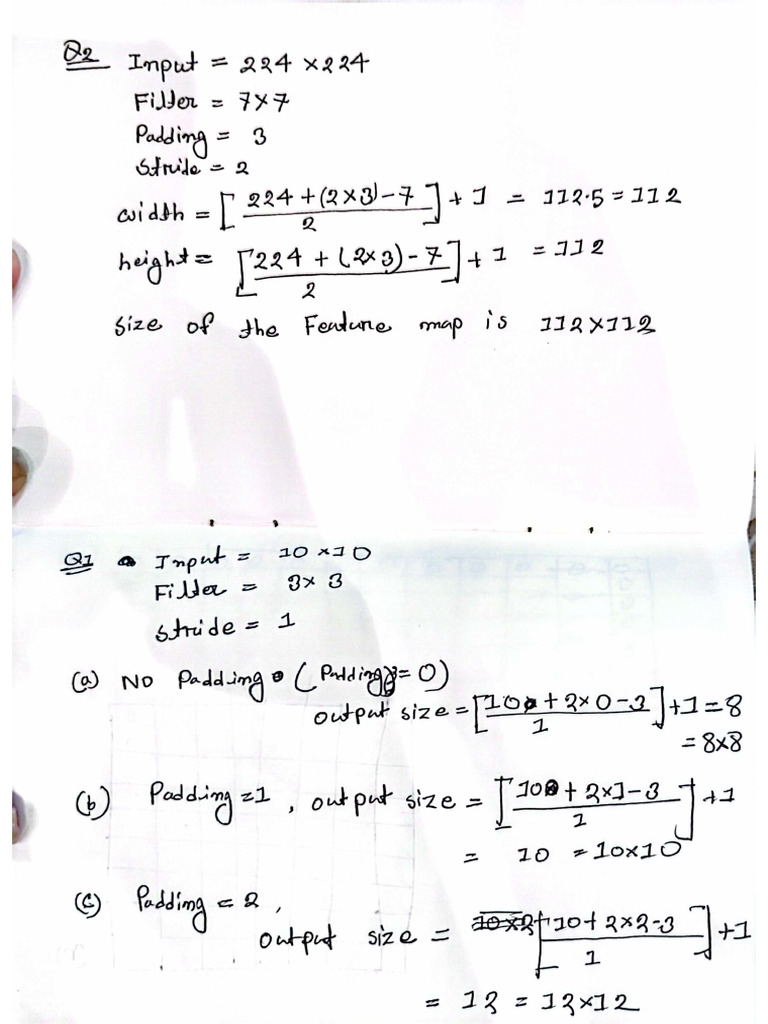 Q2 Input = 224 × 224
Filter = 7×7
Padding = 3
Stride = 2
width = [ (224 + (2×3) - 7) / 2 ] + 1 = 112.5 = 112
height = [ (224 + (2×3) - 7) / 2 ] + 1 = 112
size of the Feature map is 112×112
Q1 Input = 10 ×10
Filter = 3× 3
Stride = 1
(a) No Padding (Padding = 0)
output size = [ (10 + 2×0-3) / 1 ] +1 = 8
= 8×8
(b) Padding =1 , output size = [ (10 + 2×1-3) / 1 ] +1
= 10 = 10×10
(c) Padding = 2 ,
output size = [ (10 + 2×2-3) / 1 ] +1
= 12 = 12×12